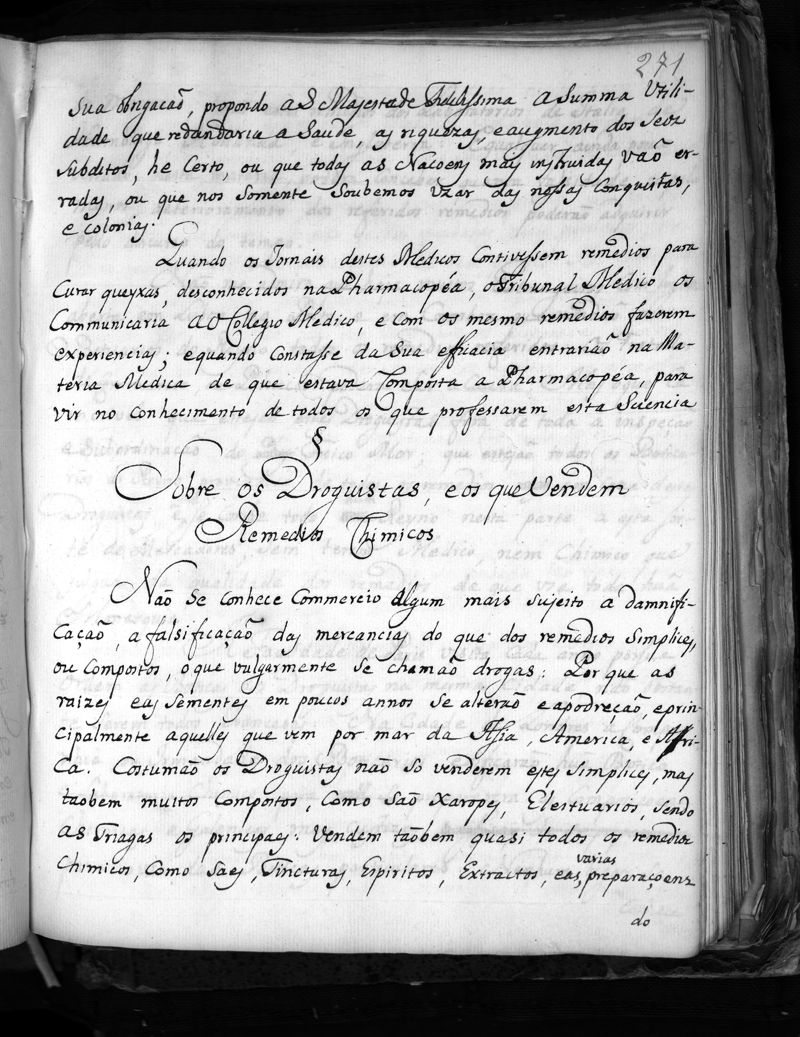 271
Sua obrigacaõ, propondo a S Majestade Fidelissima a Summa Utili-
dade que redundaria a Saude, as riquezas, e augmento dos Seoz
Subditos, he certo, ou que todas as Nacoens mais instruidas vaõ er-
radas, ou que nos somente soubemos uzar das nossas Conquistas,
e colonias.
Quando os Jornais destes Medicos Contivessem remedios para
Curar queyxas, desconhecidos na Pharmacopéa, o Tribunal Medico os
Communicaria ao Collegio Medico, e com os mesmo remedios fazerem
experiencias; e quando Constasse da Sua efficacia entrariaõ na Ma-
teria Medica de que estava Composta a Pharmacopéa, para
vir no conhecimento de todos os que professarem esta Sciencia
§
Sobre os Droguistas, e os que Vendem
Remedios Chimicos
Naõ se conhece Commercio algum mais sujeito a damnifi-
caçaõ, a falsificaçaõ das mercancias do que dos remedios simplices,
ou Compostos, o que vulgarmente se chamaõ drogas: Por que as
raizes e as sementes em poucos annos se alteraõ e apodreçaõ, e prin-
cipalmente aquelles que vem por mar da Asia, America, e Afri-
ca. Costumaõ os Droguistas naõ só venderem estes simplices, mas
taõbem muitos Compostos, Como saõ Xaropes, Electuarios, sendo
as Triagas os principaes: Vendem taõbem quasi todos os remedios
Chimicos, Como Saes, Tincturas, Espiritos, Extractos, e as varias preparaçoens
do